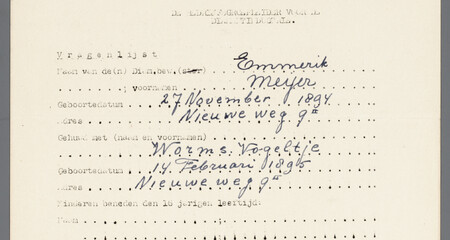 Vragenlijst
Naam van de(n) Diam.bew.(ster) Emmerik
; voornamen Meyer
Geboortedatum 27 November 1894
Adres Nieuwe weg 9II
Gehuwd met (naam en voornamen)
Worms. Vogeltje
Geboortedatum 14 Februari 1895
Adres Nieuwe weg 9II
Kinderen beneden den 16 jarigen leeftijd:
Naam